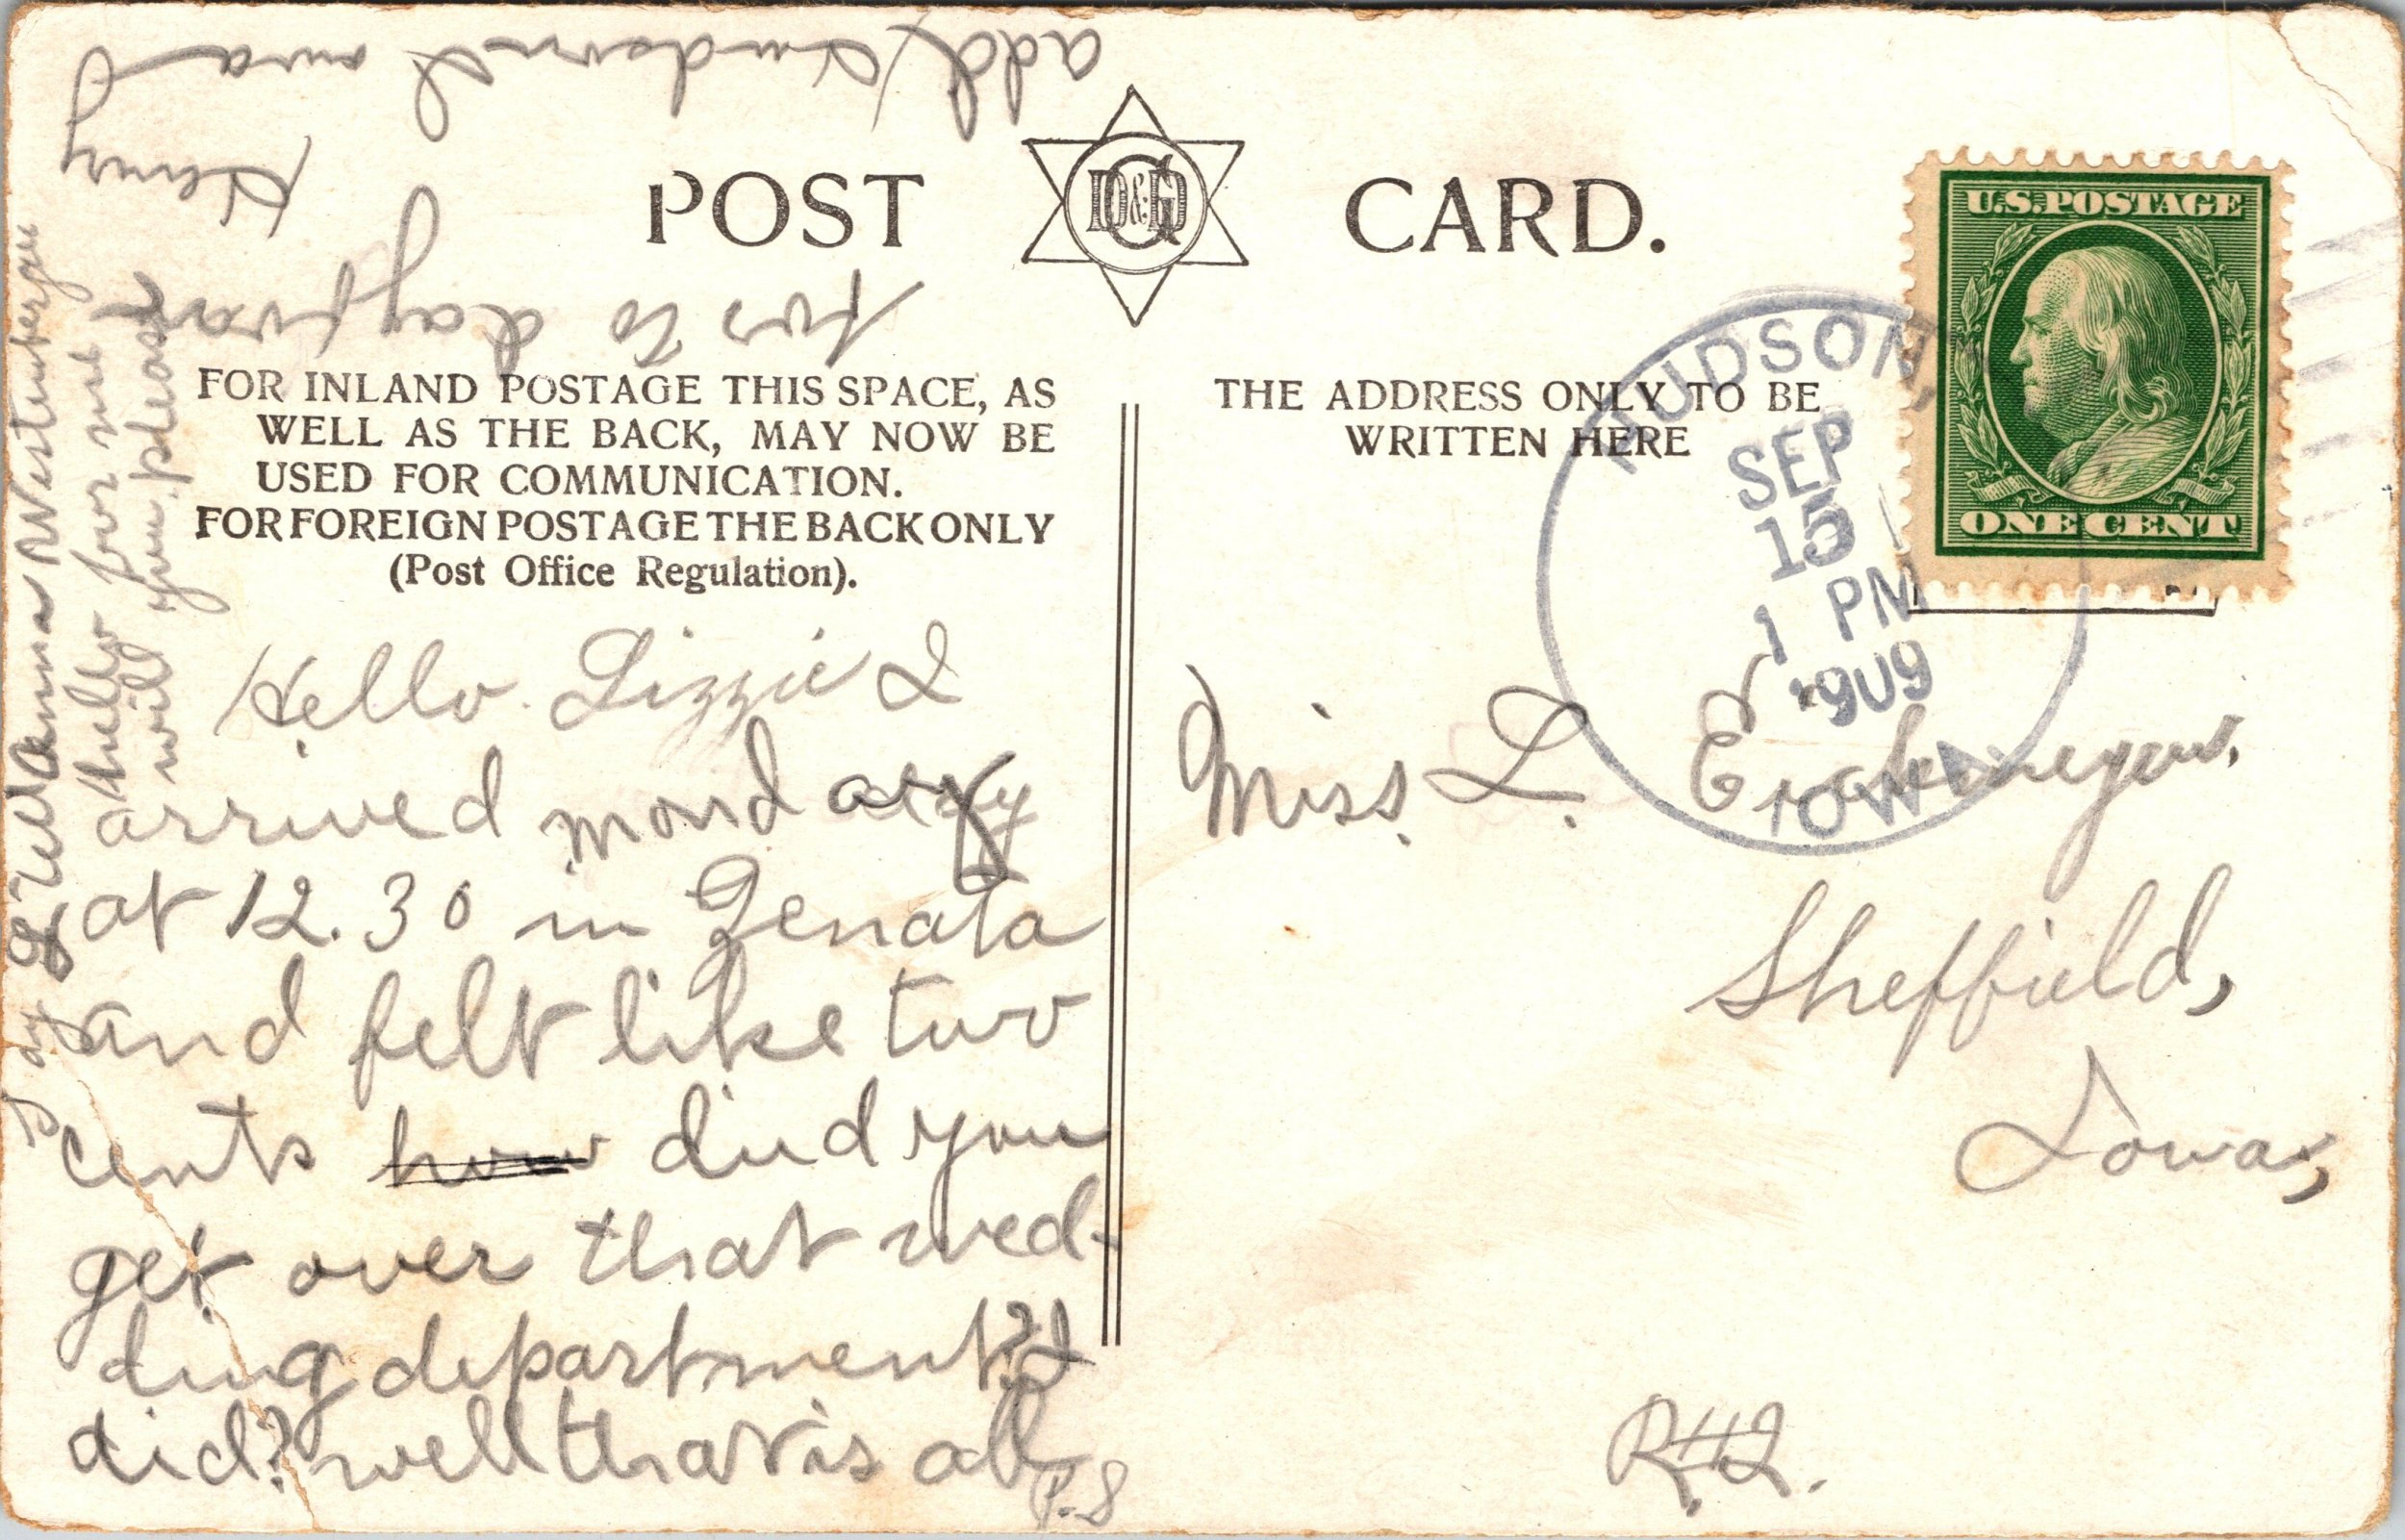 POST D&G CARD.
FOR INLAND POSTAGE THIS SPACE, AS
WELL AS THE BACK, MAY NOW BE
USED FOR COMMUNICATION.
FOR FOREIGN POSTAGE THE BACK ONLY
(Post Office Regulation).
THE ADDRESS ONLY TO BE
WRITTEN HERE
U.S. POSTAGE
ONE CENT
HUDSON,
SEP
15
1 PM
1909
IOWA
Hello. Lizzie I
arrived monday
at 12.30 in
and felt like two
cents how did you
get over that wed-
ding department? I
did? well that is all
P.S
Say Tell Anna
hello for me
will you please
for to day from
Henry
add
Miss. L.
Sheffield,
Iowa,
R#2.